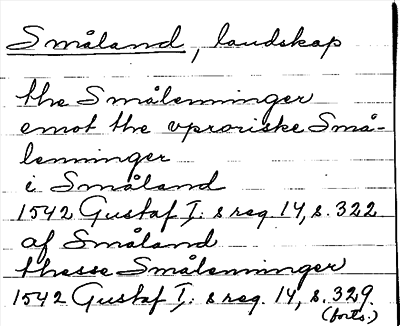 Småland, landskap
the Smålenninger
emot the vproriske Små-
lenninger
i Småland
1542 Gustaf I:s reg. 14, s. 322
af Småland
thesse Smålenninger
1542 Gustaf I:s reg. 14, s. 329.
(forts.)